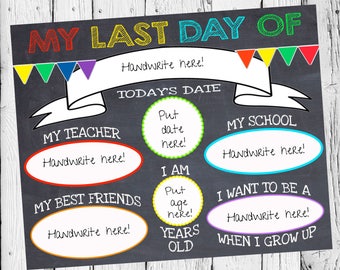 MY LAST DAY OF
Handwrite here!
TODAY'S DATE
MY TEACHER
Handwrite here!
Put
date
here!
MY SCHOOL
Handwrite here!
I AM
Put
age
here!
YEARS
OLD
MY BEST FRIENDS
Handwrite here!
I WANT TO BE A
Handwrite here!
WHEN I GROW UP